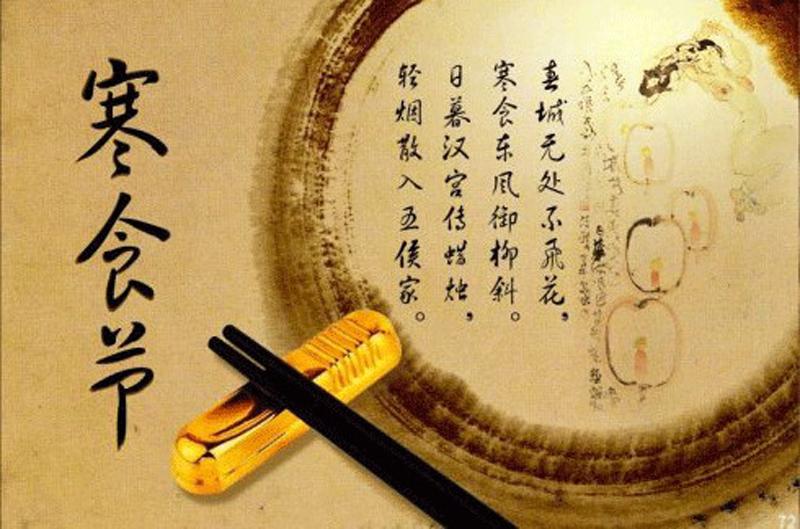 寒食节
春城无处不飛花，
寒食东风御柳斜。
日暮汉宫传蜡烛，
轻烟散入五侯家。
72